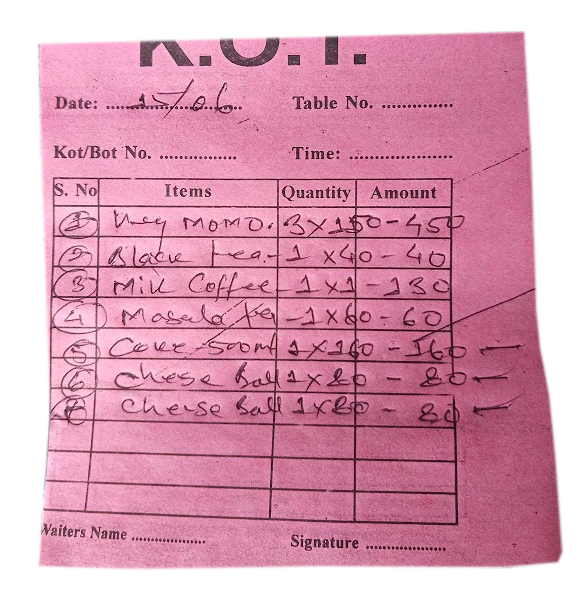 K.O.T.
Date: 15/06 Table No.
Kot/Bot No. Time:
S. No Items Quantity Amount
1 Veg MOMO. 3X150 - 450
2 Black tea. - 1 X40 - 40
3 Milk Coffee - 1X1 - 130
4 Masala tea - 1X60 - 60
5 Coke 500ml 1X160 - 160
6 Cheese Ball 1X80 - 80
7 Cheese Ball 1X80 - 80
Waiters Name Signature